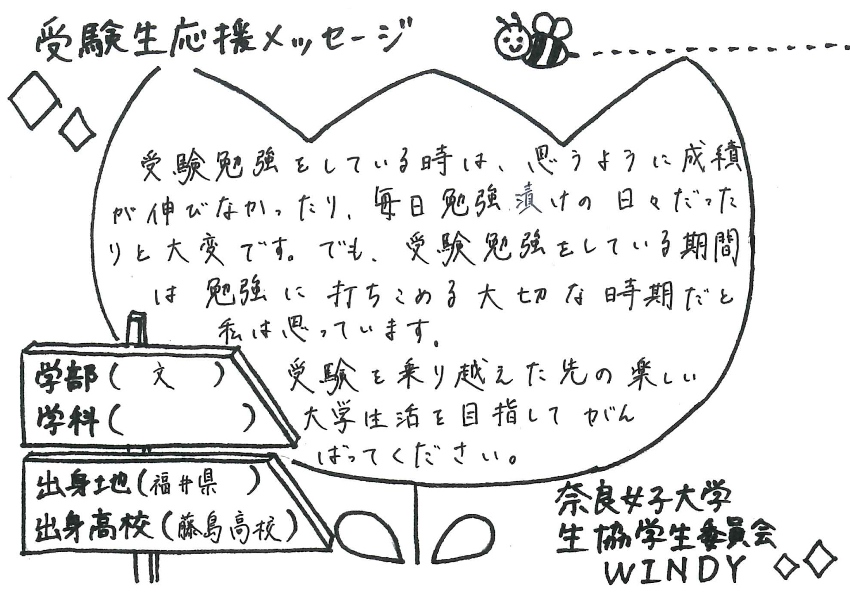 受験生応援メッセージ
受験勉強をしている時は、思うように成績
が伸びなかったり、毎日勉強漬けの日々だった
りと大変です。でも、受験勉強をしている期間
は勉強に打ちこめる大切な時期だと
私は思っています。
受験を乗り越えた先の楽しい
大学生活を目指してがん
ばってください。
学部(文)
学科( )
出身地(福井県)
出身高校(藤島高校)
奈良女子大学
生協学生委員会
WINDY